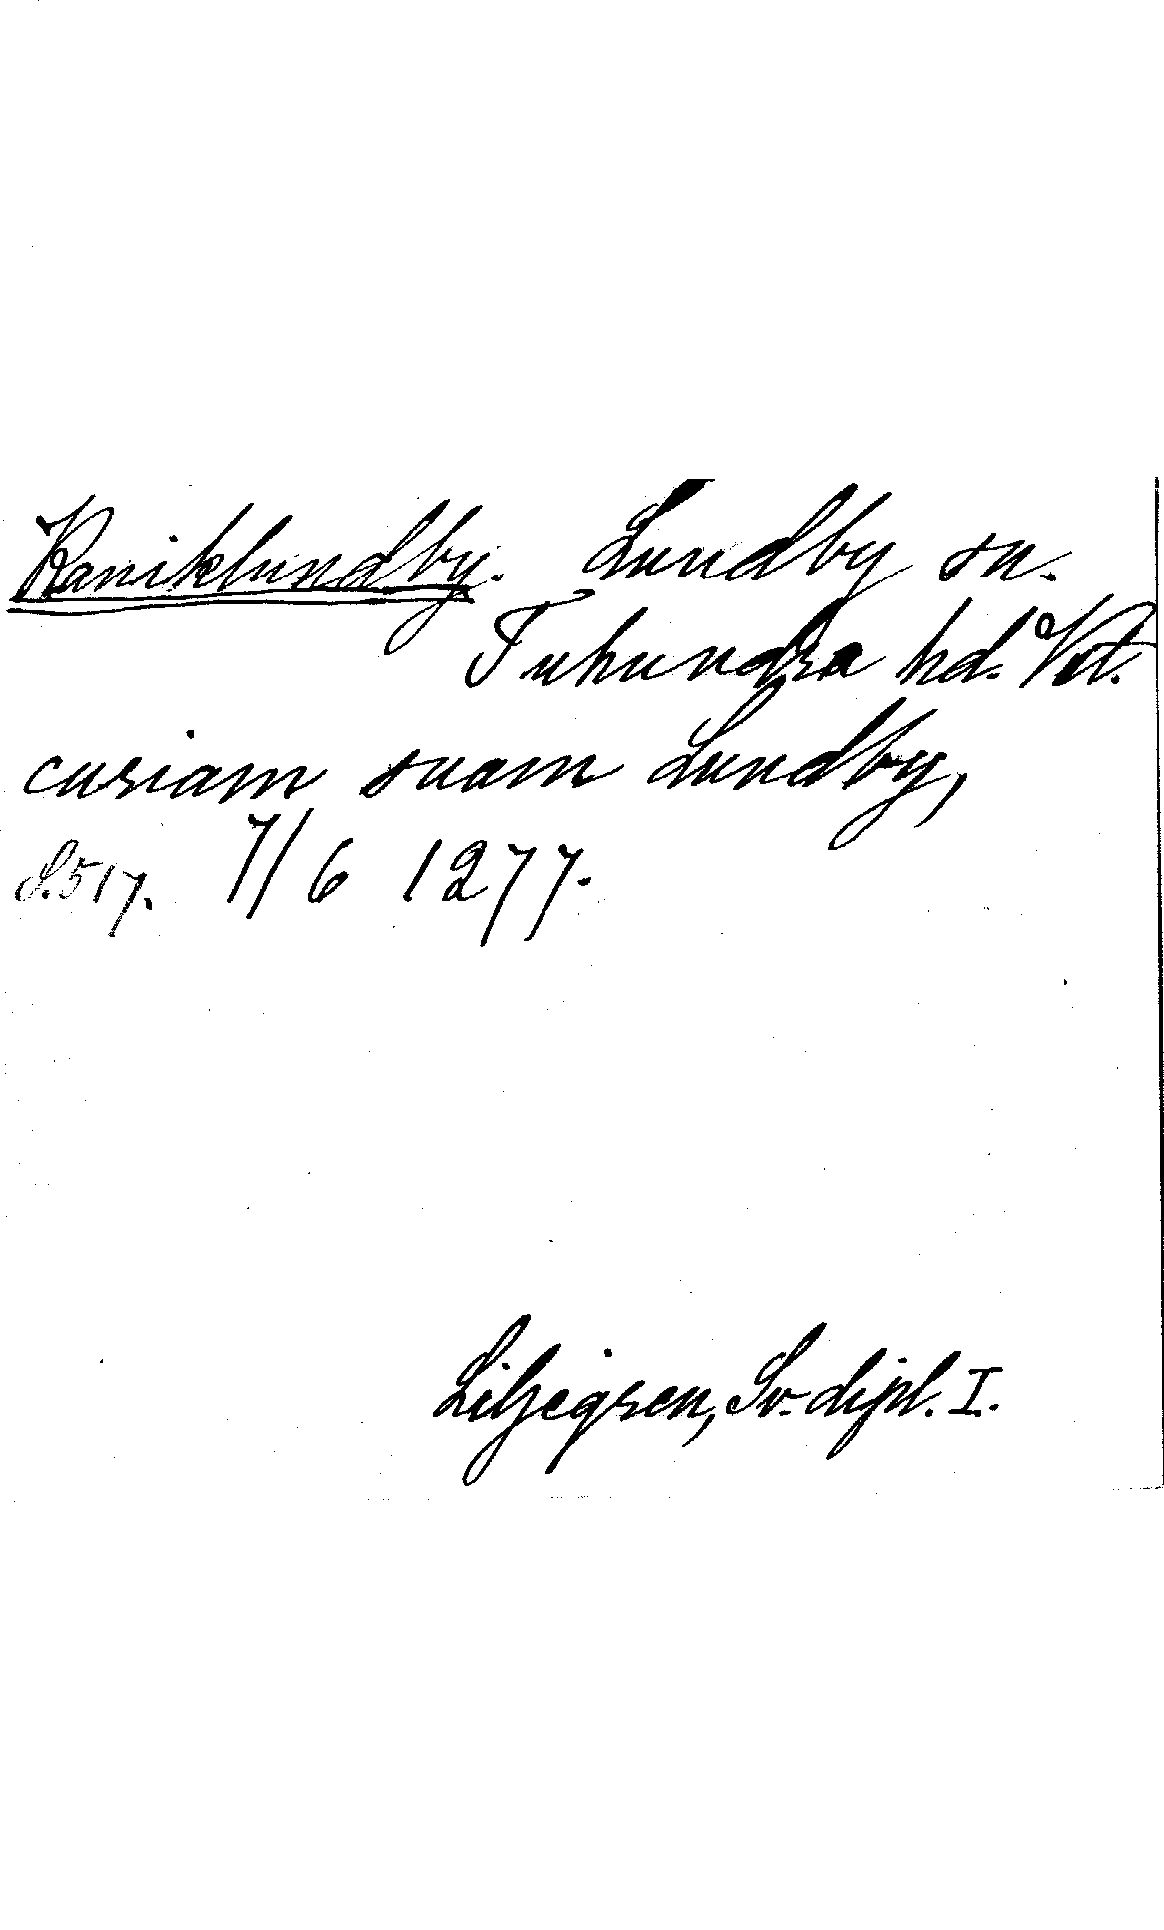 Kaniklundby. Lundby sn.
Tuhundra hd. Vstm.
curiam suam Lundby,
S. 517. 7/6 1277.
Liljegren, Sv. dipl. I.